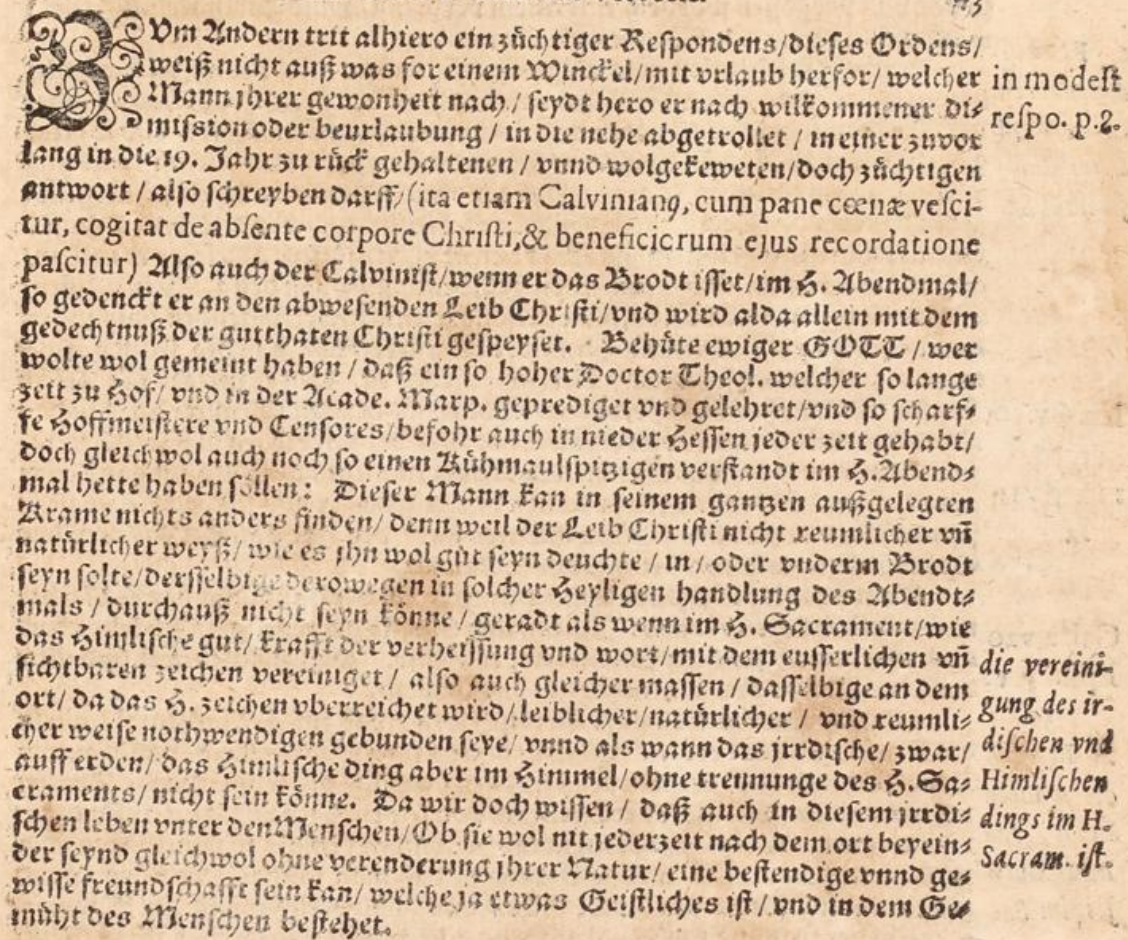 ZVm Andern trit alhiero ein züchtiger Respondens/dieses Ordens/
weiß nicht auß was for einem Winckel/mit vrlaub herfor/ welcher
Mann jhrer gewonheit nach/ seydt hero er nach wilkommener di⸗
mission oder beurlaubung / in die nehe abgetrollet / in einer zuvor
lang in die 19. Jahr zu rück gehaltenen / vnnd wolgekeweten/doch züchtigen
antwort / also schreyben darff/(ita etiam Calvinianꝰ, cum pane cœnæ vesci-
tur, cogitat de absente corpore Christi,& beneficiorum ejus recordatione
pascitur) Also auch der Calvinist/wenn er das Brodt isset/im H. Abendmal/
so gedenckt er an den abwesenden Leib Christi/vnd wird alda allein mit dem
gedechtnuß der gutthaten Christi gespeyset. Behüte ewiger GOTT / wer
wolte wol gemeint haben / daß ein so hoher Doctor Theol. welcher so lange
zeit zu Hof/ vnd in der Acade. Marp. geprediget vnd gelehret/vnd so scharf⸗
fe Hoffmeistere vnd Censores/befohr auch in nieder Hessen jeder zeit gehabt/
doch gleichwol auch noch so einen Kühmaulspitzigen verstandt im H.Abend⸗
mal hette haben söllen: Dieser Mann kan in seinem gantzen außgelegten
Krame nichts anders finden/ denn weil der Leib Christi nicht reumlicher vñ
natürlicher weyß/ wie es jhn wol gut seyn deuchte / in/ oder vnderm Brodt
seyn solte/dersselbige derowegen in solcher Heyligen handlung des Abendt⸗
mals / durchauß nicht seyn könne / geradt als wenn im H. Sacrament/wie
das Himlische gut/ krafft der verheissung vnd wort/mit dem eusserlichen vñ
sichtbaren zeichen vereiniget / also auch gleicher massen / dasselbige an dem
ort/ da das H. zeichen vberreichet wird/leiblicher/natürlicher / vnd reumli⸗
cher weise nothwendigen gebunden seye/ vnnd als wann das jrrdische/ zwar/
auff erden/ das Himlische ding aber im Himmel/ohne trennunge des H. Sa⸗
craments/ nicht sein könne. Da wir doch wissen / daß auch in diesem jrrdi⸗
schen leben vnter den Menschen/Ob sie wol nit jederzeit nach dem ort beyein⸗
der seynd gleichwol ohne verenderung jhrer Natur/ eine bestendige vnnd ge⸗
wisse freundschafft sein kan/ welche ja etwas Geistliches ist / vnd in dem Ge⸗
müht des Menschen bestehet.
in modest
respo. p.2.
die vereini-
gung des ir-
dischen vnd
Himlischen
dings im H.
Sacram. ist.